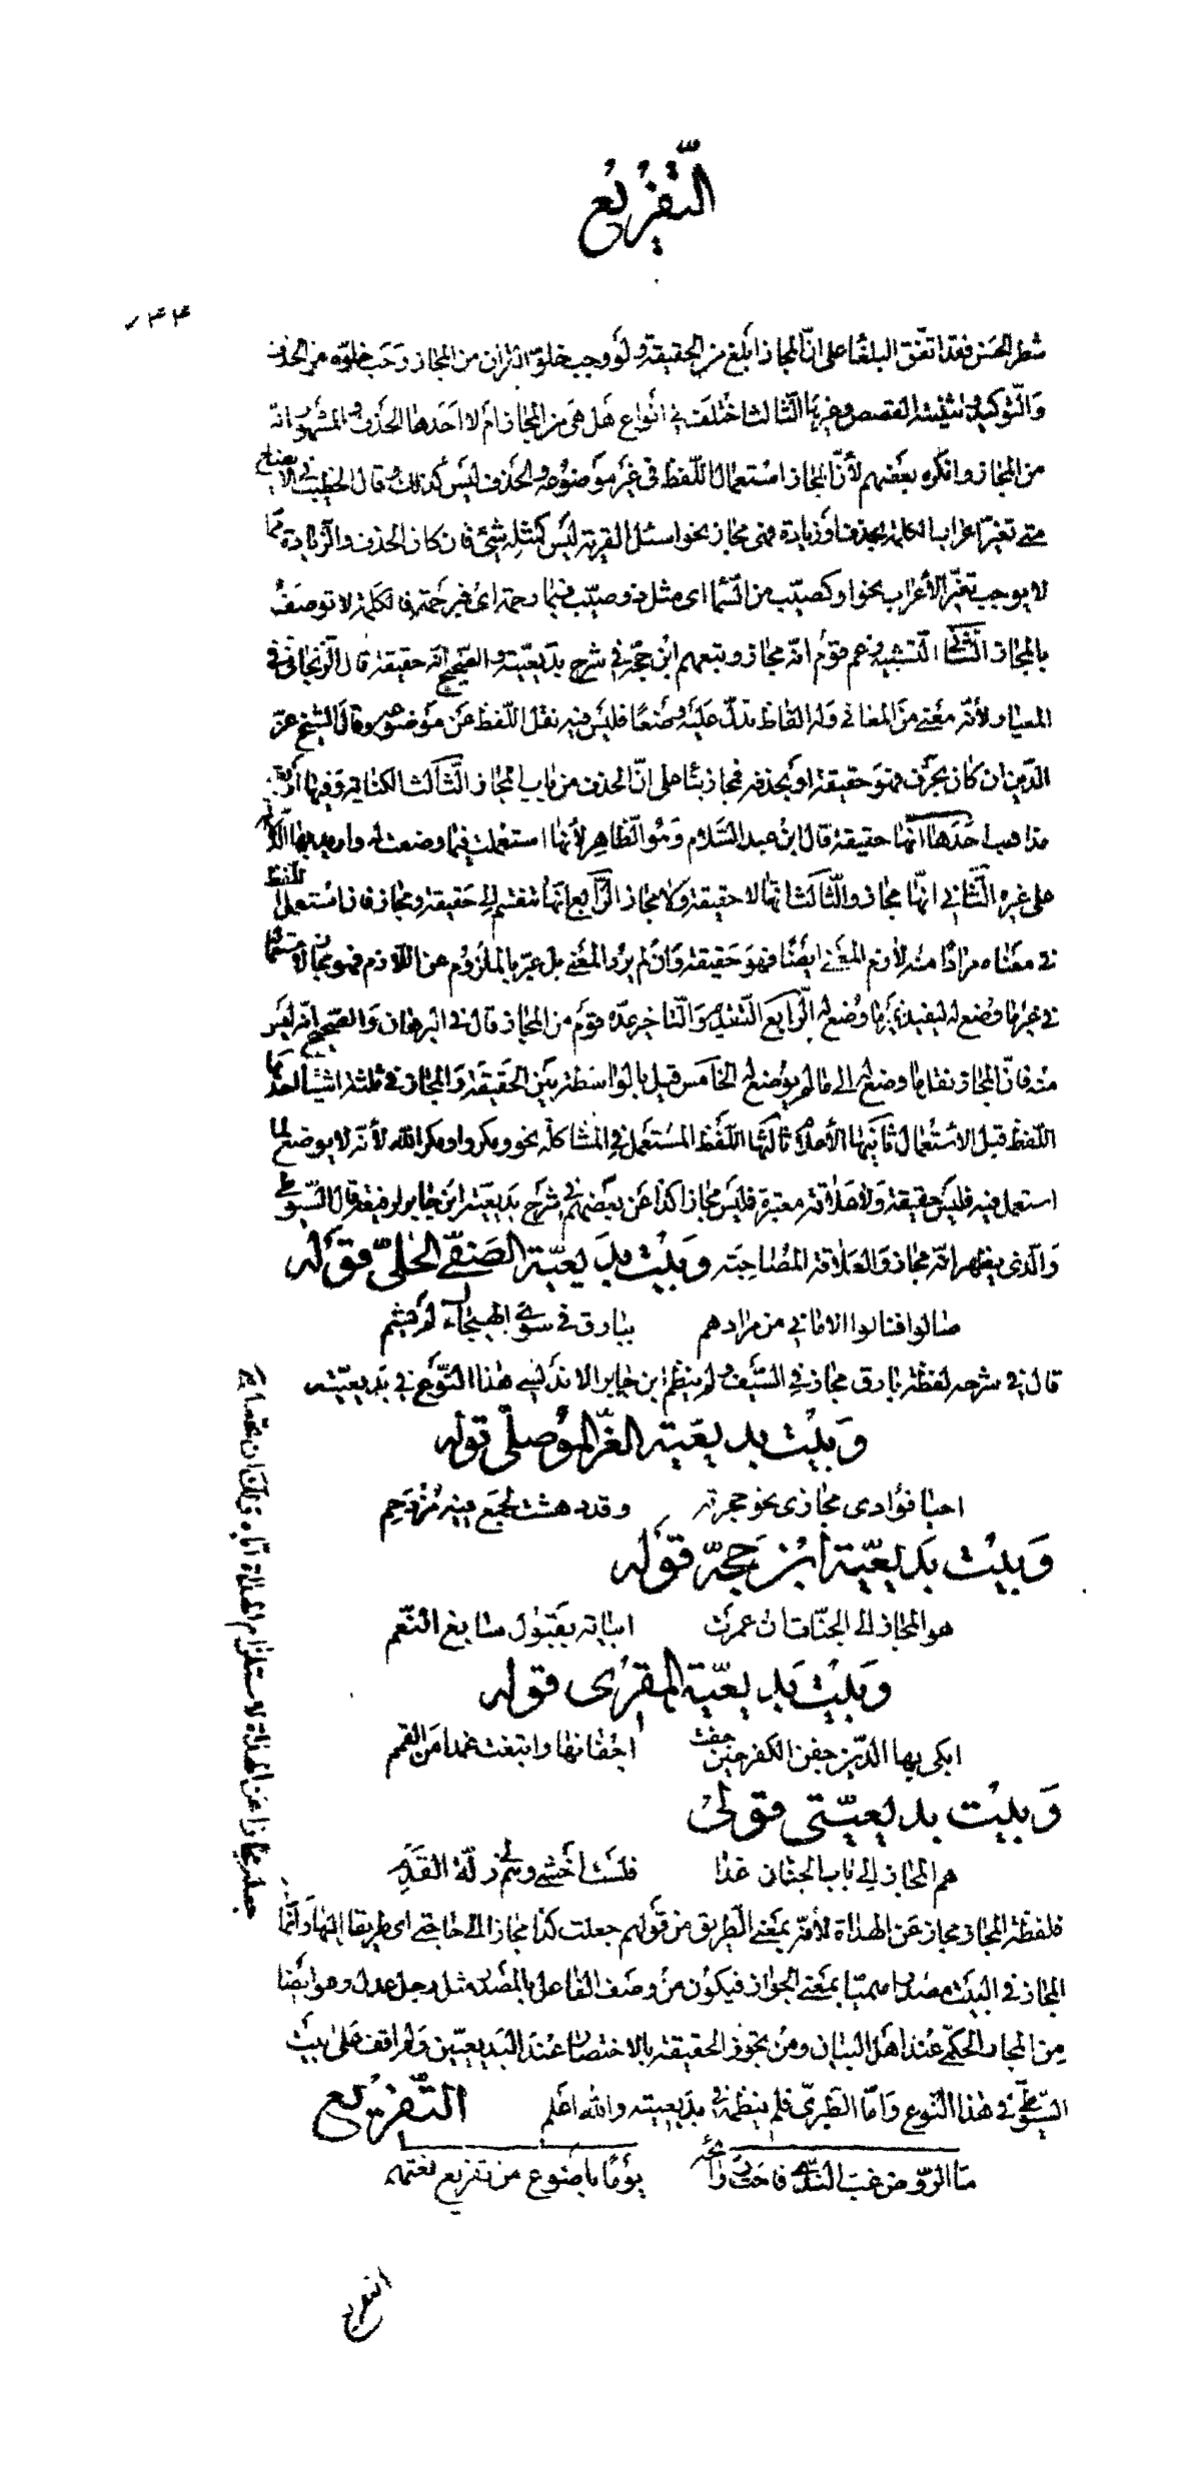 التّفريع
٧٤٤
شطر الحسن فقد اتّفق البلغاء على انّ المجاز ابلغ من الحقيقة ولو وجب خلوّ القران من المجاز وجب خلوّه من الحذف
والتّوكيد وتثنية القصص وغيرها الثّالث اختلف في انواع هل هي من المجاز ام لا احدها الحذف والمشهور انّه
من المجاز وانكره بعضهم لأنّ المجاز استعمال اللّفظ في غير موضوعه والحذف ليس كذلك وقال الخطيب في الايضاح
متى تغيّر اعراب الكلمة بحذف او زيادة فهي مجاز نحو اسئل القرية ليس كمثله شيئ فان كان الحذف والزّيادة ممّا
لا يوجب تغيّر الأعراب نحو او كصيّب من السّماء اى مثل ذوى صيّب فبما رحمة اى فبرحمة فالكلمة لا توصف
بالمجاز الثّانى التّشبيه زعم قوم انّه مجاز وتبعهم ابن حجّة في شرح بديعيّته والصّحيح انّه حقيقة قال الزّنجانى في
المعيار لأنّه معنى من المعاني وله الفاظ تدلّ عليه وضعًا فليس فيه نقل اللّفظ عن موضوعه وقال الشّيخ عزّ
الدّين ان كان بحرف فهو حقيقة او بحذفه فمجاز بناء على انّ الحذف من باب المجاز الثّالث الكناية وفيها اربعة
مذاهب احدها انّها حقيقة قال ابن عبد السّلام وهو الظّاهر لأنها استعملت فيما وضعت له واريد بها الدّلالة
على غيره الثّاني انّها مجاز والثّالث انّها لا حقيقة ولا مجاز الرّابع انّها تنقسم الى حقيقة ومجاز فان استعمل اللّفظ
في معناه مرادًا منه لازم المعنى ايضًا فهو حقيقة وان لم يرد المعنى بل عبّر بالملزوم عن اللّازم فهو مجاز لاستعماله
في غير ما وضع له ليفيد غير ما وضع له الرّابع التّقديم والتّاخير عدّه قوم من المجاز قال في البرهان والصّحيح انّه ليس
منه فانّ المجاز نقل ما وضع له الى ما لم يوضع له الخامس قيل بالواسطة بين الحقيقة والمجاز في ثلثة اشياء احدها
اللّفظ قبل الاستعمال ثانيها الأعلام ثالثها اللّفظ المستعمل في المشاكلة نحو ومكروا ومكر الله لأنّه لم يوضع لما
استعمل فيه فليس حقيقة ولا علاقة معتبرة فليس مجازا كذا عن بعضهم في شرح بديعيّة ابن جابر لرفيقه قال السّيوطى
والّذى يظهر انّه مجاز والعلاقة المصاحبة وبيت بديعيّة الصّفىّ الحلىّ قوله
صالوا فنالوا الامانى من مرادهم ببارق في سوى الهيجاء لم يشم
قال في شرحه لفظة بارق مجاز في السّيف ولم ينظم ابن جابر الاندلسى هذا النّوع في بديعيّته
وبيت بديعيّة العزّ الموصلى قوله
احيا فؤادى مجازى نحو حجرته وقد دهشت لجمع فيه مزدحم
وبيت بديعيّة ابن حجّة قوله
هو المجاز الى الجنّات ان عمرت ابياته بقبول سابغ النّعم
وبيت بديعيّة المقرى قوله
ابكى بها الدّين جفن الكفر حين جفت اجفانها وابتغت غمدا من القمم
وبيت بديعيّتى قولى
هم المجاز الى باب الجنان غدا فلست اخشى وهم زلّة القدم
فلفظة المجاز مجاز عن الهداة لأنّه بمعنى الطّريق من قولهم جعلت كذا مجازا الى حاجتى اى طريقا اليها وانّما
المجاز في البيت مصدر ميمىّ بمعنى الجواز فيكون من وصف الفاعل بالمصدر مثل رجل عدل وهو ايضا
من المجاز الحكمى عند اهل البيان ومن تجوّز الحقيقة بالاختصار عند البديعيّين ولم اقف على بيت
السّيوطى في هذا النّوع وامّا الطّبرىّ فلم ينظمه في بديعيته والله اعلم التّفريع
ما الرّوض غبّ النّدى فاحت روائحه يومًا باضوع من تفريع نعتهم
جعله مجازا عن الهداة لاستلزام الهداة ايّاه
انتهى